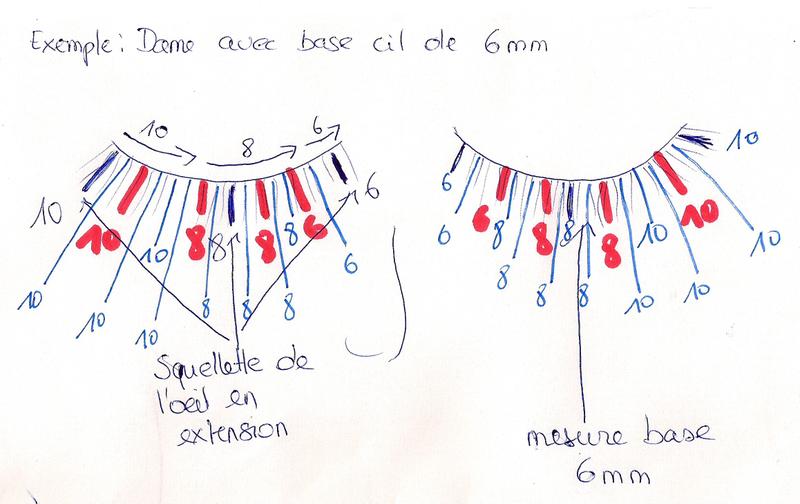 Exemple: Dame avec base cil de 6mm
10 8 6
10 6
10 10 8 8 8 8 6
10 10 10 8 8 8 6
Squellette de
l'oeil en
extension
10
6
6 6 8 8 8 8 10 10
8 8 8 10 10 10
mesure base
6mm